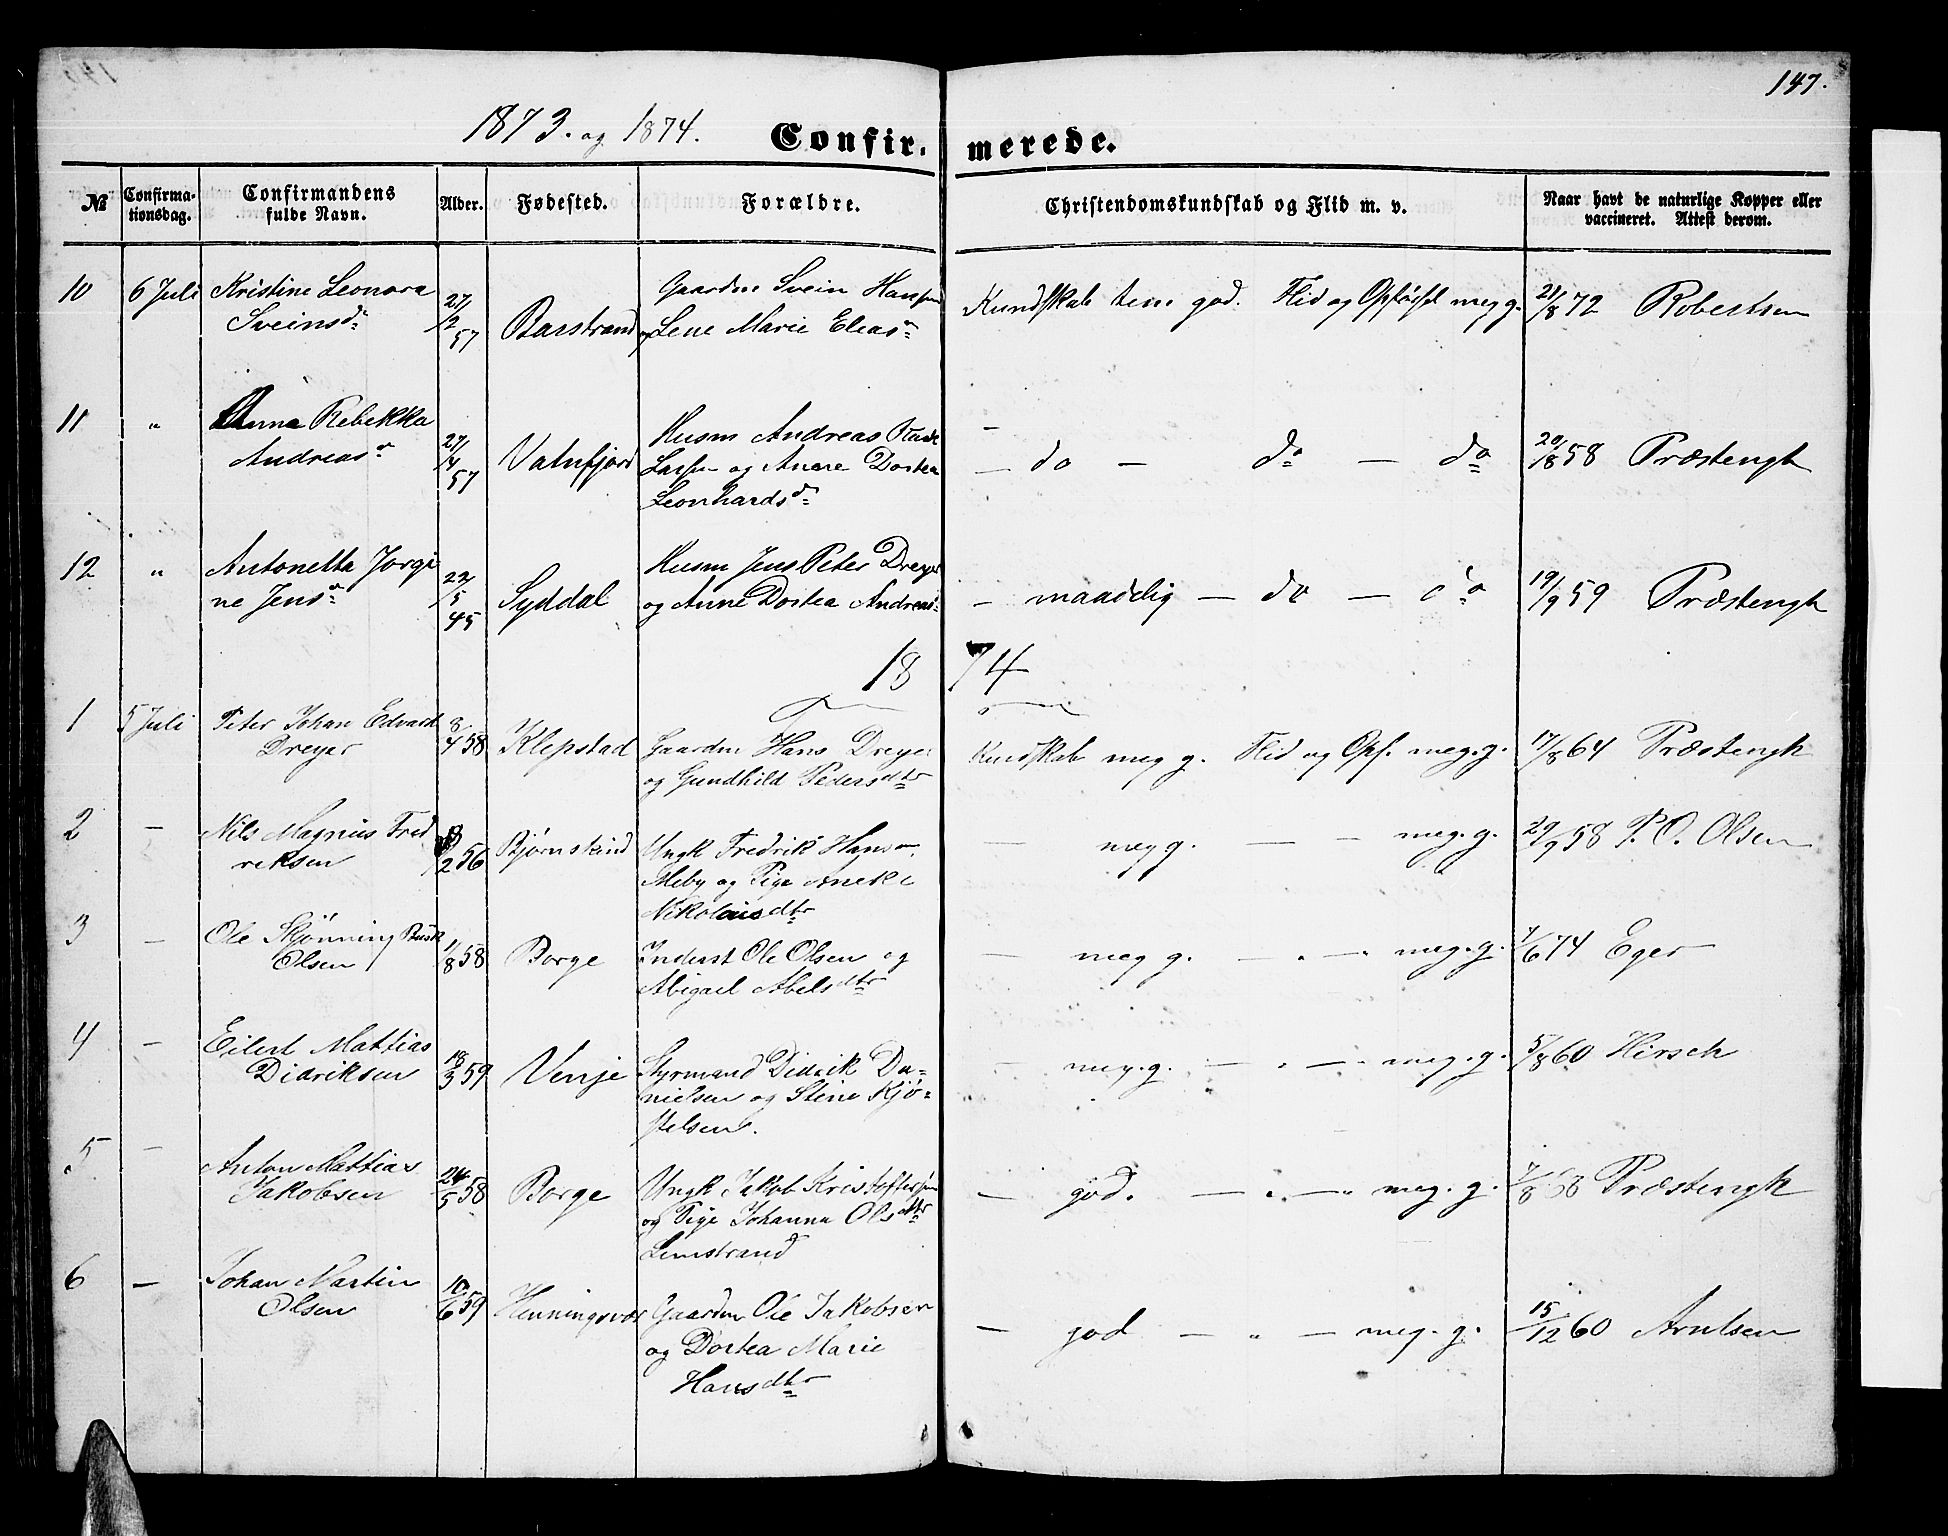 147.
1873. og 1874.
Confirmerede.
№ Confirmationsdag. Confirmandens fulde Navn. Alder. Fødested. Forældre. Christendomskundskab og Flid m. v. Naar havt de naturlige Kopper eller vaccineret. Attest derom.
10 6 Juli Kristine Leonora Gaardm Svein Hansen Kundskab tem god. Flid og Opførsel meg g. 21/8 72 Robertsen
Sveinsd. 27/2 57 Barstrand og Lene Marie Eleasd.
11 " Anna Rebekka Husm Andreas
Andreasd. 27/4 57 Vatnfjord Larsen og Anne Dortea — do — do — do 20/8 58 Præstengk
Leonhardsd.
12 " Antonetta Jorgi Husm Jens Peter Dreyer
ne Jensd. 22/5 45 Syddal og Anne Dortea Andreasd. — maadelig — do — do 19/9 59 Præstengk
1874
1 5 Juli Peter Johan Edvard
Dreyer 3/4 58 Klepstad Gaardm Hans Dreyer Kundskab meg g. Flid og Opf. meg. g. 17/8 64 Præstengk
og Gundhild Pedersdtr
2 — Nils Magnus Fred
reksen /2 56 Bjørnskind Ungk Fredrik Hans — meg g. — — meg. g. 29/9 58 P. O. Olsen
Meby og Pige Aneke
Nikolaisdtr
3 — Ole Skjønning Busk
Olsen 1/8 58 Borge Inderst Ole Olsen og — meg g. — " — " meg. g. 7/6 74 Eger
Abigael Abelsdtr
4 — Eilert Mattias
Didriksen 18/3 59 Venje Styrmand Didrik Da- — meg. g. — " — meg. g. 5/8 60 Hirsch
nielsen og Stine Kjø-
stelsen.
5 — Anton Mattias
Jakobsen 24/5 58 Borge Ungk Jakob Kristoffersen — god. — " — " meg. g. 7/8 58 Præstengk
og Pige Johanna Olsdtr
Limstrand
6 — Johan Martin
Olsen 10/6 59 Henningsvær Gaardm Ole Jakobsen — god — " — meg. g. 15/12 60 Arntsen
og Dortea Marie
Hansdtr